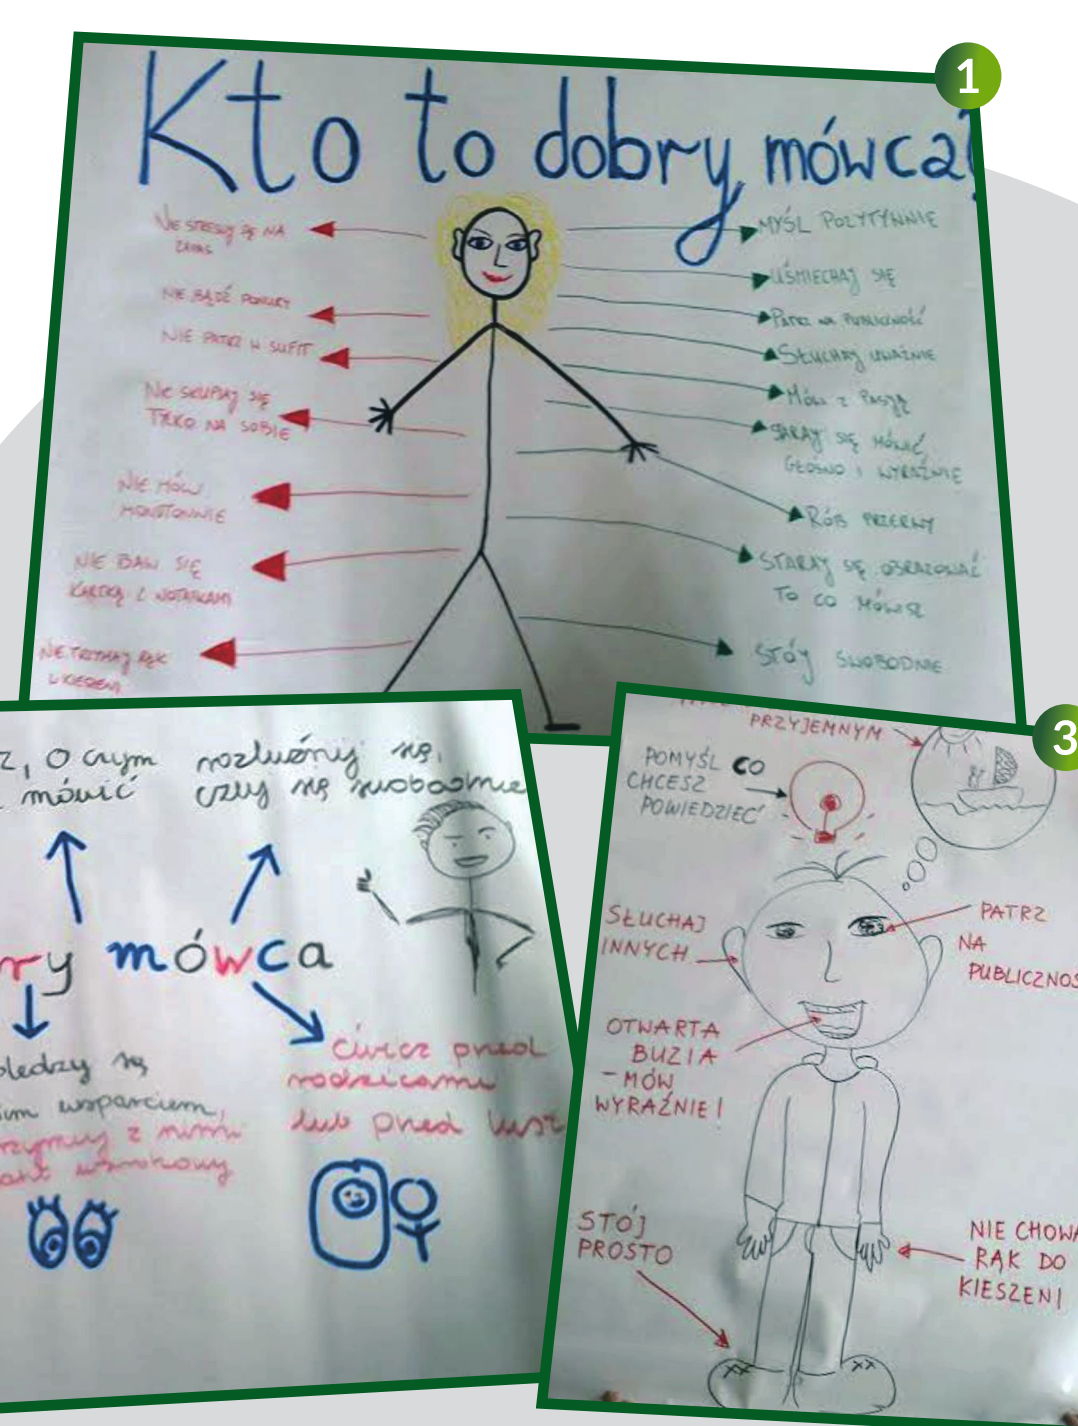 1
Kto to dobry mówca?
NIE STRESUJ SIĘ NA
ZAPAS
NIE BĄDŹ PONURY
NIE PATRZ W SUFIT
NIE SKUPIAJ SIĘ
TYLKO NA SOBIE
NIE MÓW
MONOTONNIE
NIE BAW SIĘ
KARTKĄ Z NOTATKAMI
NIE TRZYMAJ RĄK
W KIESZENI
MYŚL POZYTYWNIE
UŚMIECHAJ SIĘ
PATRZ NA PUBLICZNOŚĆ
SŁUCHAJ UWAŻNIE
MÓW Z PASJĄ
STARAJ SIĘ MÓWIĆ
GŁOŚNO I WYRAŹNIE
RÓB PRZERWY
STARAJ SIĘ OBRAZOWAĆ
TO CO MÓWISZ
STÓJ SWOBODNIE
z, o czym
mówić
rozluźnij się,
czuj się swobodnie
ry mówca
ledzy są
im wsparciem,
rzymuj z nimi
akt wzrokowy
ćwicz przed
rodzicami
lub przed lust
3
PRZYJEMNYM
POMYŚL CO
CHCESZ
POWIEDZIEĆ
SŁUCHAJ
INNYCH
PATRZ
NA
PUBLICZNOŚ
OTWARTA
BUZIA
- MÓW
WYRAŹNIE!
STÓJ
PROSTO
NIE CHOWA
RĄK DO
KIESZENI